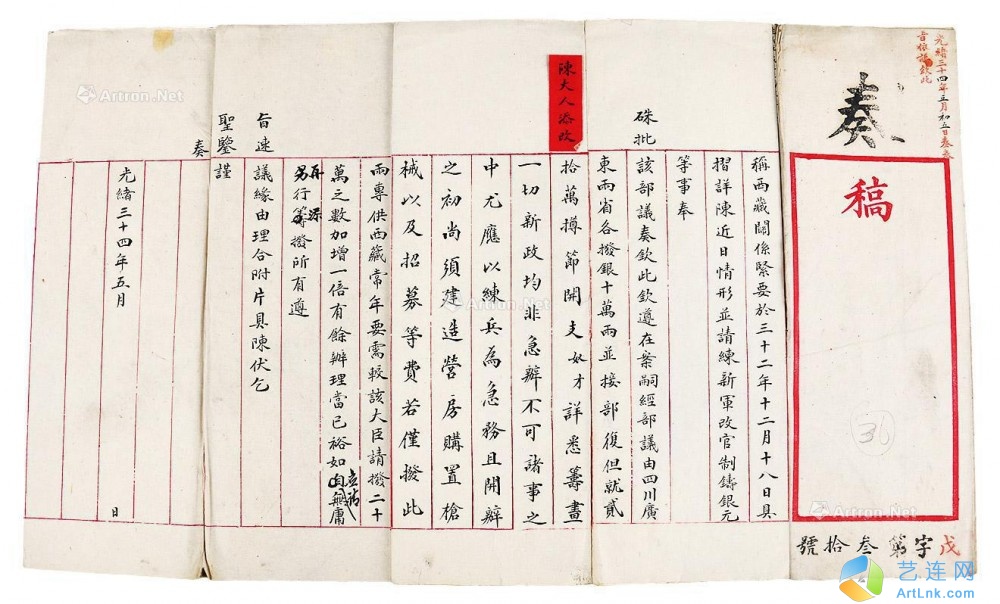 光緒三十四年五月初五日奏奉
旨依議欽此
奏
稿
戊字第叁拾號
稱西藏關係緊要於三十二年十二月十八日具
摺詳陳近日情形並請練新軍改官制鑄銀元
等事奉
硃批
該部議奏欽此欽遵在案嗣經部議由四川廣
東兩省各撥銀十萬兩並接部復但就貳
拾萬撙節開支奴才詳悉籌畫
陳大人添改
一切新政均非急辦不可諸事之
中尤應以練兵為急務且開辦
之初尚須建造營房購置槍
械以及招募等費若僅撥此
兩專供西藏常年要需較該大臣請撥二十
萬之數加增一倍有餘辦理當已裕如自無庸
另行籌撥所有遵
再添
旨速
議緣由理合附片具陳伏乞
聖鑒謹
奏
光緒三十四年五月
日
Artron.Net
Artron.Net
Artron.Net
艺连网
ArtLnk.com